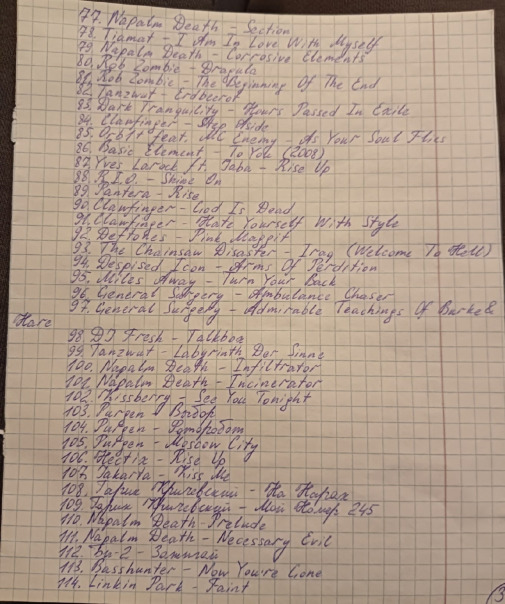 77. Napalm Death - Section
78. Tiamat - I Am In Love With Myself
79. Napalm Death - Corrosive Elements
80. Rob Zombie - Dragula
81. Rob Zombie - The Beginning Of The End
82. Tanzwut - Erdbeerot
83. Dark Tranquility - Hours Passed In Exile
84. Clawfinger - Step Aside
85. Orbit feat. Enemy - As Your Soul Flies
86. Basic Element - To You (2008)
87. Yves Larock ft. Jaba - Rise Up
88. R.I.O. - Shine On
89. Pantera - Rise
90. Clawfinger - God Is Dead
91. Clawfinger - Hate Yourself With Style
92. Deftones - Pink Maggit
93. The Chainsaw Disaster - Iraq (Welcome To Hell)
94. Despised Icon - Arms Of Perdition
95. Miles Away - Turn Your Back
96. General Surgery - Ambulance Chaser
97. General Surgery - Admirable Teachings Of Burke &
Hare
98. DJ Fresh - Talkbox
99. Tanzwut - Labyrinth Der Sinne
100. Napalm Death - Infiltrator
101. Napalm Death - Incinerator
102. Khissberry - See You Tonight
103. Purgen - Выбор
104. Purgen - Роторобот
105. Purgen - Moscow City
106. Hectix - Rise Up
107. Jakarta - Kiss Me
108. Гарик Кричевский - На Нарах
109. Гарик Кричевский - Мой Номер 245
110. Napalm Death - Prelude
111. Napalm Death - Necessary Evil
112. Би-2 -
113. Basshunter - Now You're Gone
114. Linkin Park - Faint